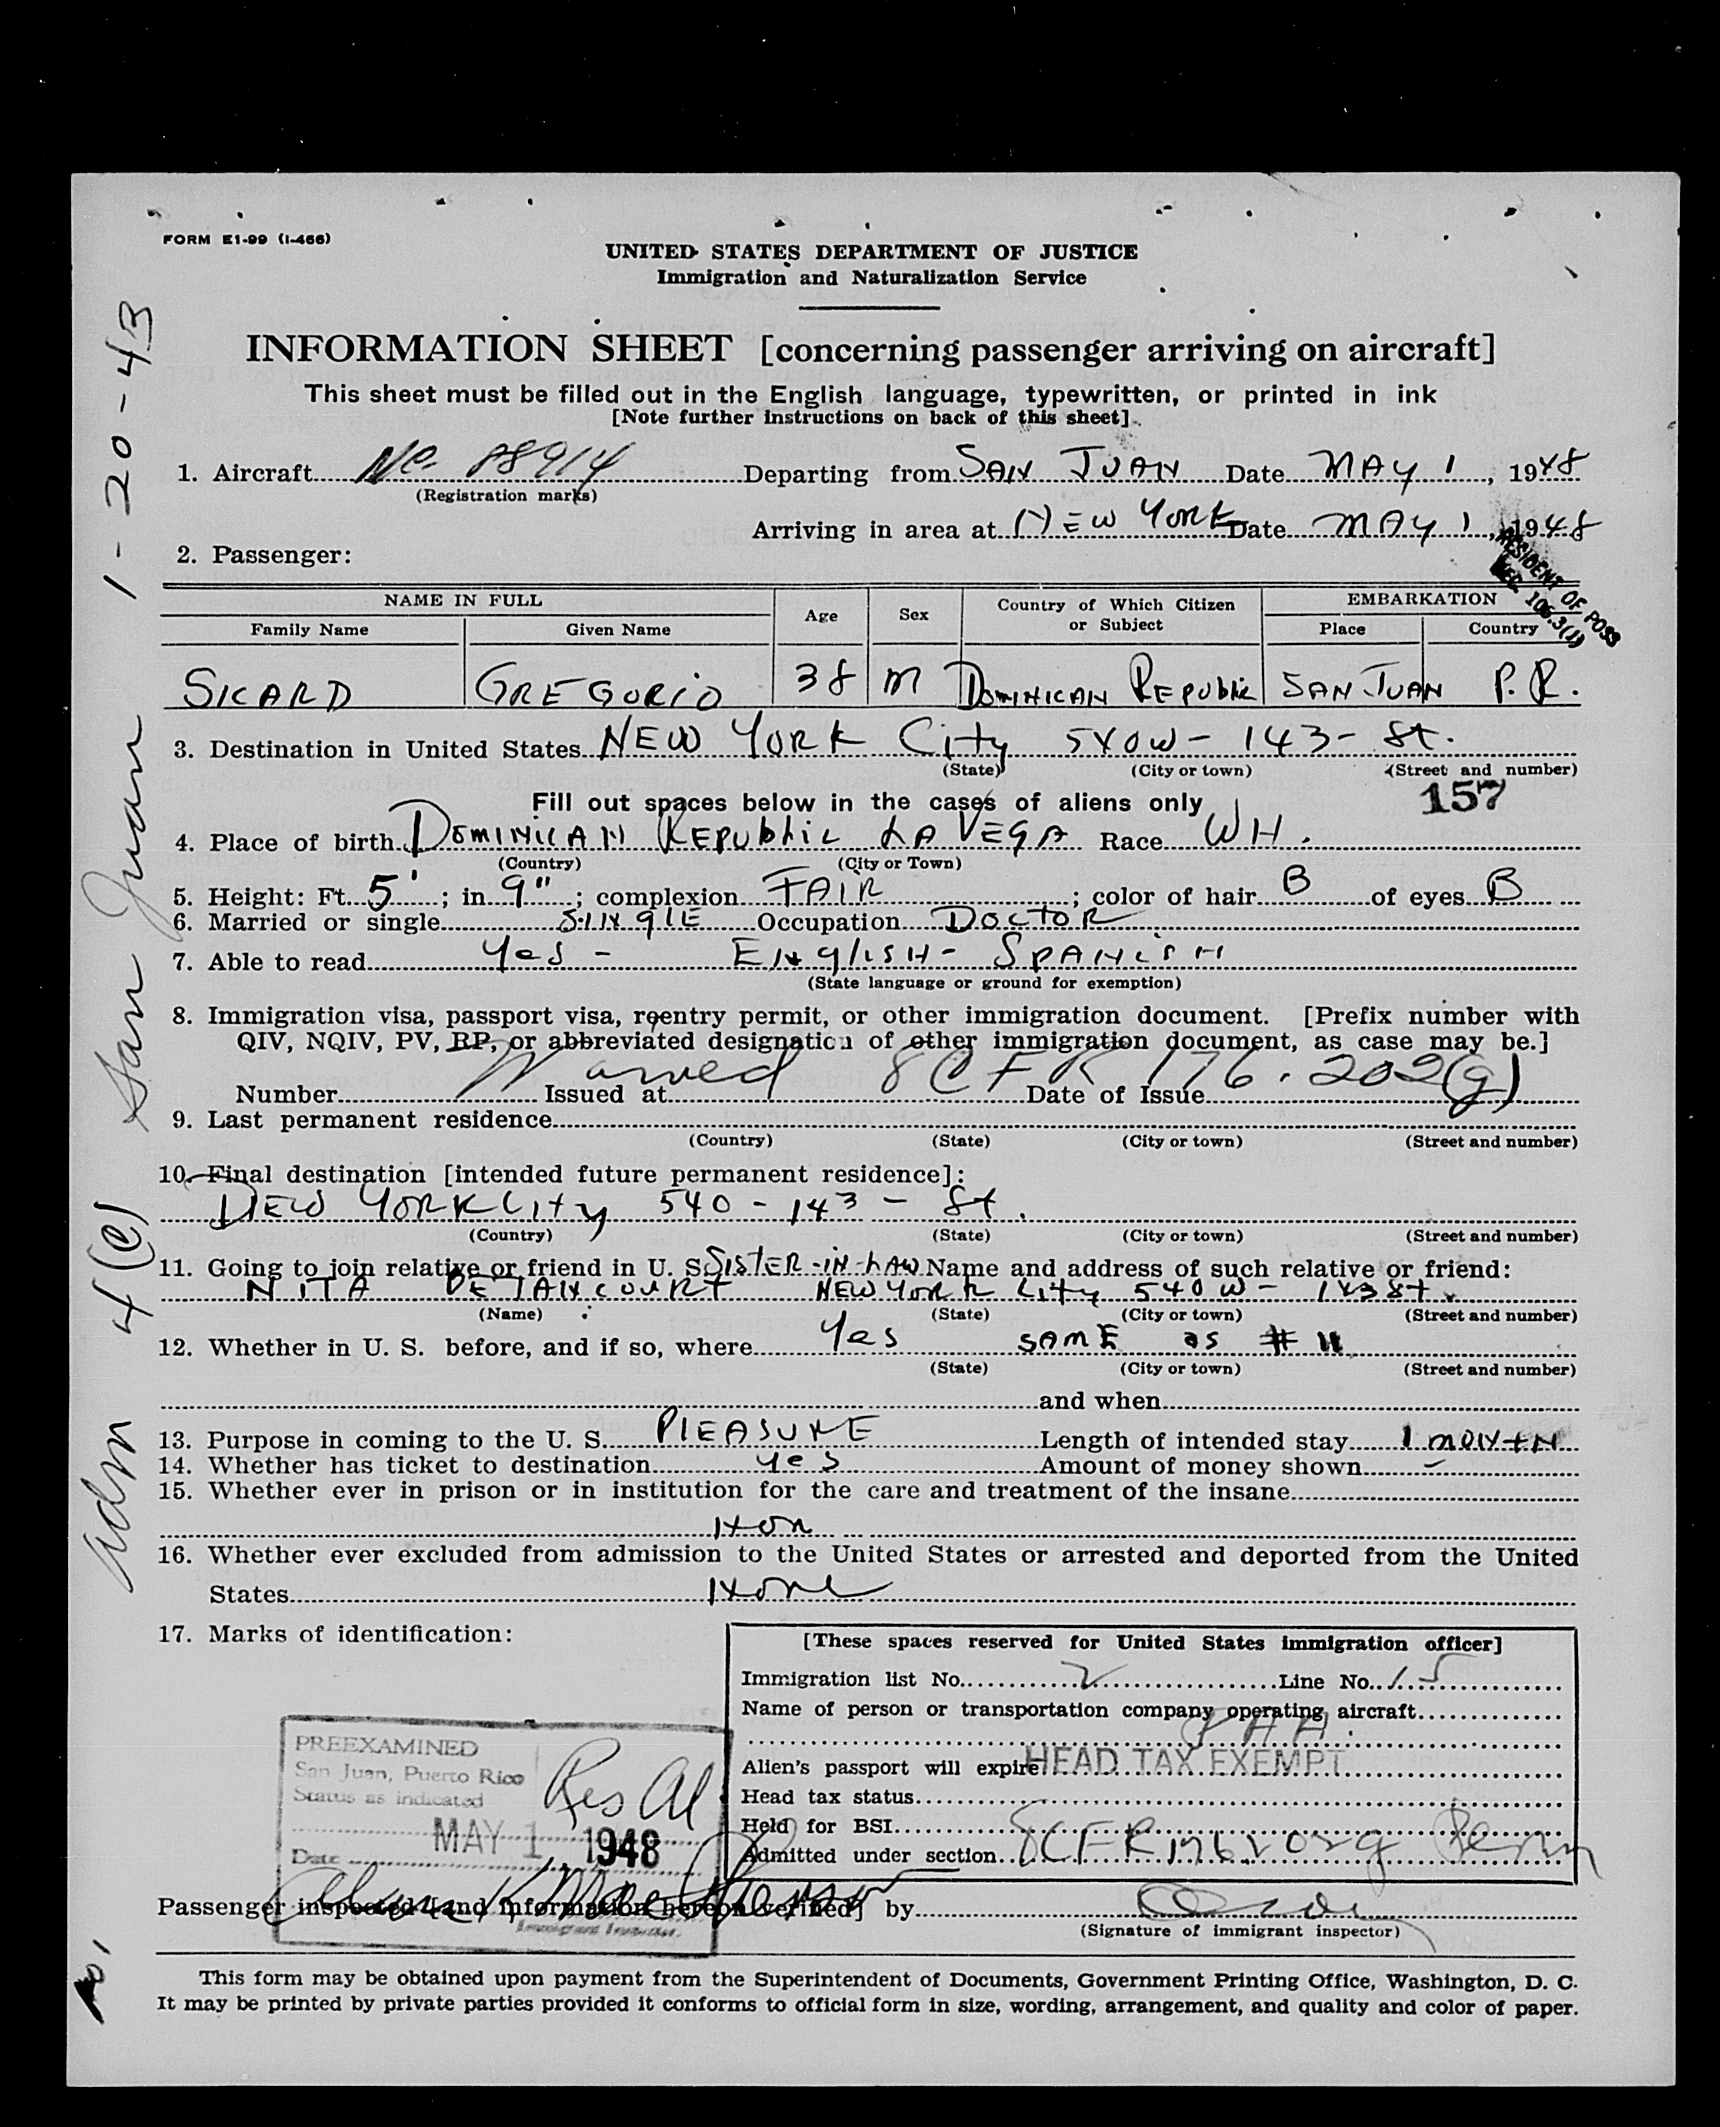 FORM E1-99 (I-466)
UNITED STATES DEPARTMENT OF JUSTICE
Immigration and Naturalization Service
INFORMATION SHEET [concerning passenger arriving on aircraft]
This sheet must be filled out in the English language, typewritten, or printed in ink
[Note further instructions on back of this sheet]
1. Aircraft NC. 88914 Departing from SAN JUAN Date MAY 1, 1948
(Registration marks)
Arriving in area at NEW YORK Date MAY 1, 1948
2. Passenger:
RESIDENT OF POSS
SEC 106.3(1)
NAME IN FULL Age Sex Country of Which Citizen or Subject EMBARKATION
Family Name Given Name Place Country
SICARD GREGORIO 38 M DOMINICAN REPUBLIC SAN JUAN P.R.
3. Destination in United States NEW YORK City 540W- 143- St.
(State) (City or town) (Street and number)
Fill out spaces below in the cases of aliens only 157
4. Place of birth DOMINICAN REPUBLIC LA VEGA Race WH.
(Country) (City or Town)
5. Height: Ft. 5'; in 9"; complexion FAIR; color of hair B of eyes B
6. Married or single SINGLE Occupation DOCTOR
7. Able to read Yes - ENGLISH - SPANISH
(State language or ground for exemption)
8. Immigration visa, passport visa, reentry permit, or other immigration document. [Prefix number with
QIV, NQIV, PV, RP, or abbreviated designation of other immigration document, as case may be.]
Waived 8 CFR 176.202(g)
Number Issued at Date of Issue
9. Last permanent residence
(Country) (State) (City or town) (Street and number)
10. Final destination [intended future permanent residence]:
NEW YORK City 540 - 143 - St.
(Country) (State) (City or town) (Street and number)
11. Going to join relative or friend in U. S. SISTER-IN-LAW Name and address of such relative or friend:
NITA BETANCOURT NEW YORK City 540 W- 143 St.
(Name) (State) (City or town) (Street and number)
12. Whether in U. S. before, and if so, where Yes SAME as # 11
(State) (City or town) (Street and number)
and when
13. Purpose in coming to the U. S. PLEASURE Length of intended stay 1 MONTH
14. Whether has ticket to destination yes Amount of money shown -
15. Whether ever in prison or in institution for the care and treatment of the insane
Non
16. Whether ever excluded from admission to the United States or arrested and deported from the United
States None
17. Marks of identification:
[These spaces reserved for United States immigration officer]
Immigration list No. 2 Line No. 15
Name of person or transportation company operating aircraft
PAA.
Alien's passport will expire HEAD TAX EXEMPT
Head tax status
Held for BSI
Admitted under section 8CFR 176 202g Perm
PREEXAMINED
San Juan, Puerto Rico
Status as indicated
Res Al
MAY 1 1948
Date
Immigrant Inspector
Passenger inspected [and information hereon verified] by
(Signature of immigrant inspector)
This form may be obtained upon payment from the Superintendent of Documents, Government Printing Office, Washington, D. C.
It may be printed by private parties provided it conforms to official form in size, wording, arrangement, and quality and color of paper.
Adm 4(e) San Juan 1-20-43